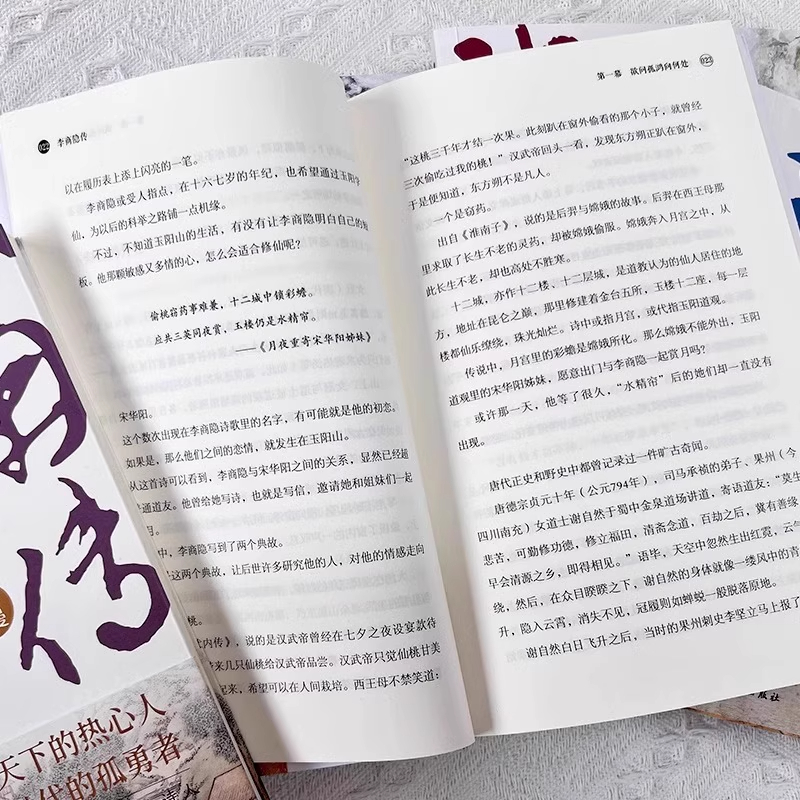 022 李商隐传
以在履历表上添上闪亮的一笔。
李商隐或受人指点，在十六七岁的年纪，也希望通过玉阳学
仙，为以后的科举之路铺一点机缘。
不过，不知道玉阳山的生活，有没有让李商隐明白自己的短
板。他那颗敏感又多情的心，怎么会适合修仙呢？
偷桃窃药事难兼，十二城中锁彩蟾。
应共三英同夜赏，玉楼仍是水精帘。
——《月夜重寄宋华阳姊妹》
宋华阳。
这个数次出现在李商隐诗歌里的名字，有可能就是他的初恋。
如果是，那么他们之间的恋情，就发生在玉阳山。
从这首诗可以看到，李商隐与宋华阳之间的关系，显然已经超
通道友。他曾给她写诗，也就是写信，邀请她和姐妹们一起
月。
中，李商隐写到了两个典故。
这两个典故，让后世许多研究他的人，对他的情感走向
桃。
内传》，说的是汉武帝曾经在七夕之夜设宴款待
带来几只仙桃给汉武帝品尝。汉武帝只觉仙桃甘美
起来，希望可以在人间栽培。西王母不禁笑道：
第一幕 欲问孤鸿向何处 023
“这桃三千年才结一次果。此刻趴在窗外偷看的那个小子，就曾经
三次偷吃过我的桃！”汉武帝回头一看，发现东方朔正趴在窗外，
于是便知道，东方朔不是凡人。
一个是窃药。
出自《淮南子》，说的是后羿与嫦娥的故事。后羿在西王母那
里求取了长生不老的灵药，却被嫦娥偷服。嫦娥奔入月宫之中，从
此长生不老，却也高处不胜寒。
十二城，亦作十二楼、十二层城，是道教认为的仙人居住的地
方，地址在昆仑之巅，那里修建着金台五所，玉楼十二座，每一层
楼都仙乐缭绕，珠光灿烂。诗中或指月宫，或代指玉阳道观。
传说中，月宫里的彩蟾是嫦娥所化。那么嫦娥不能外出，玉阳
道观里的宋华阳姊妹，愿意出门与李商隐一起赏月吗？
或许那一天，他等了很久，“水精帘”后的她们却一直没有
出现。
唐代正史和野史中都曾记录过一件旷古奇闻。
唐德宗贞元十年（公元794年），司马承祯的弟子、果州（今
四川南充）女道士谢自然于蜀中金泉道场讲道，寄语道友：“莫生
悲苦，可勤修功德，修立福田，清斋念道，百劫之后，冀有善缘
早会清源之乡，即得相见。”语毕，天空中忽然生出红霓，云气
绕，然后，在众目睽睽之下，谢自然的身体就像一缕风中的青
升，隐入云霄，消失不见，冠履则如蝉蜕一般脱落原地。
谢自然白日飞升之后，当时的果州刺史李坚立马上报了
传
天下的热心人
代的孤勇者
出版社